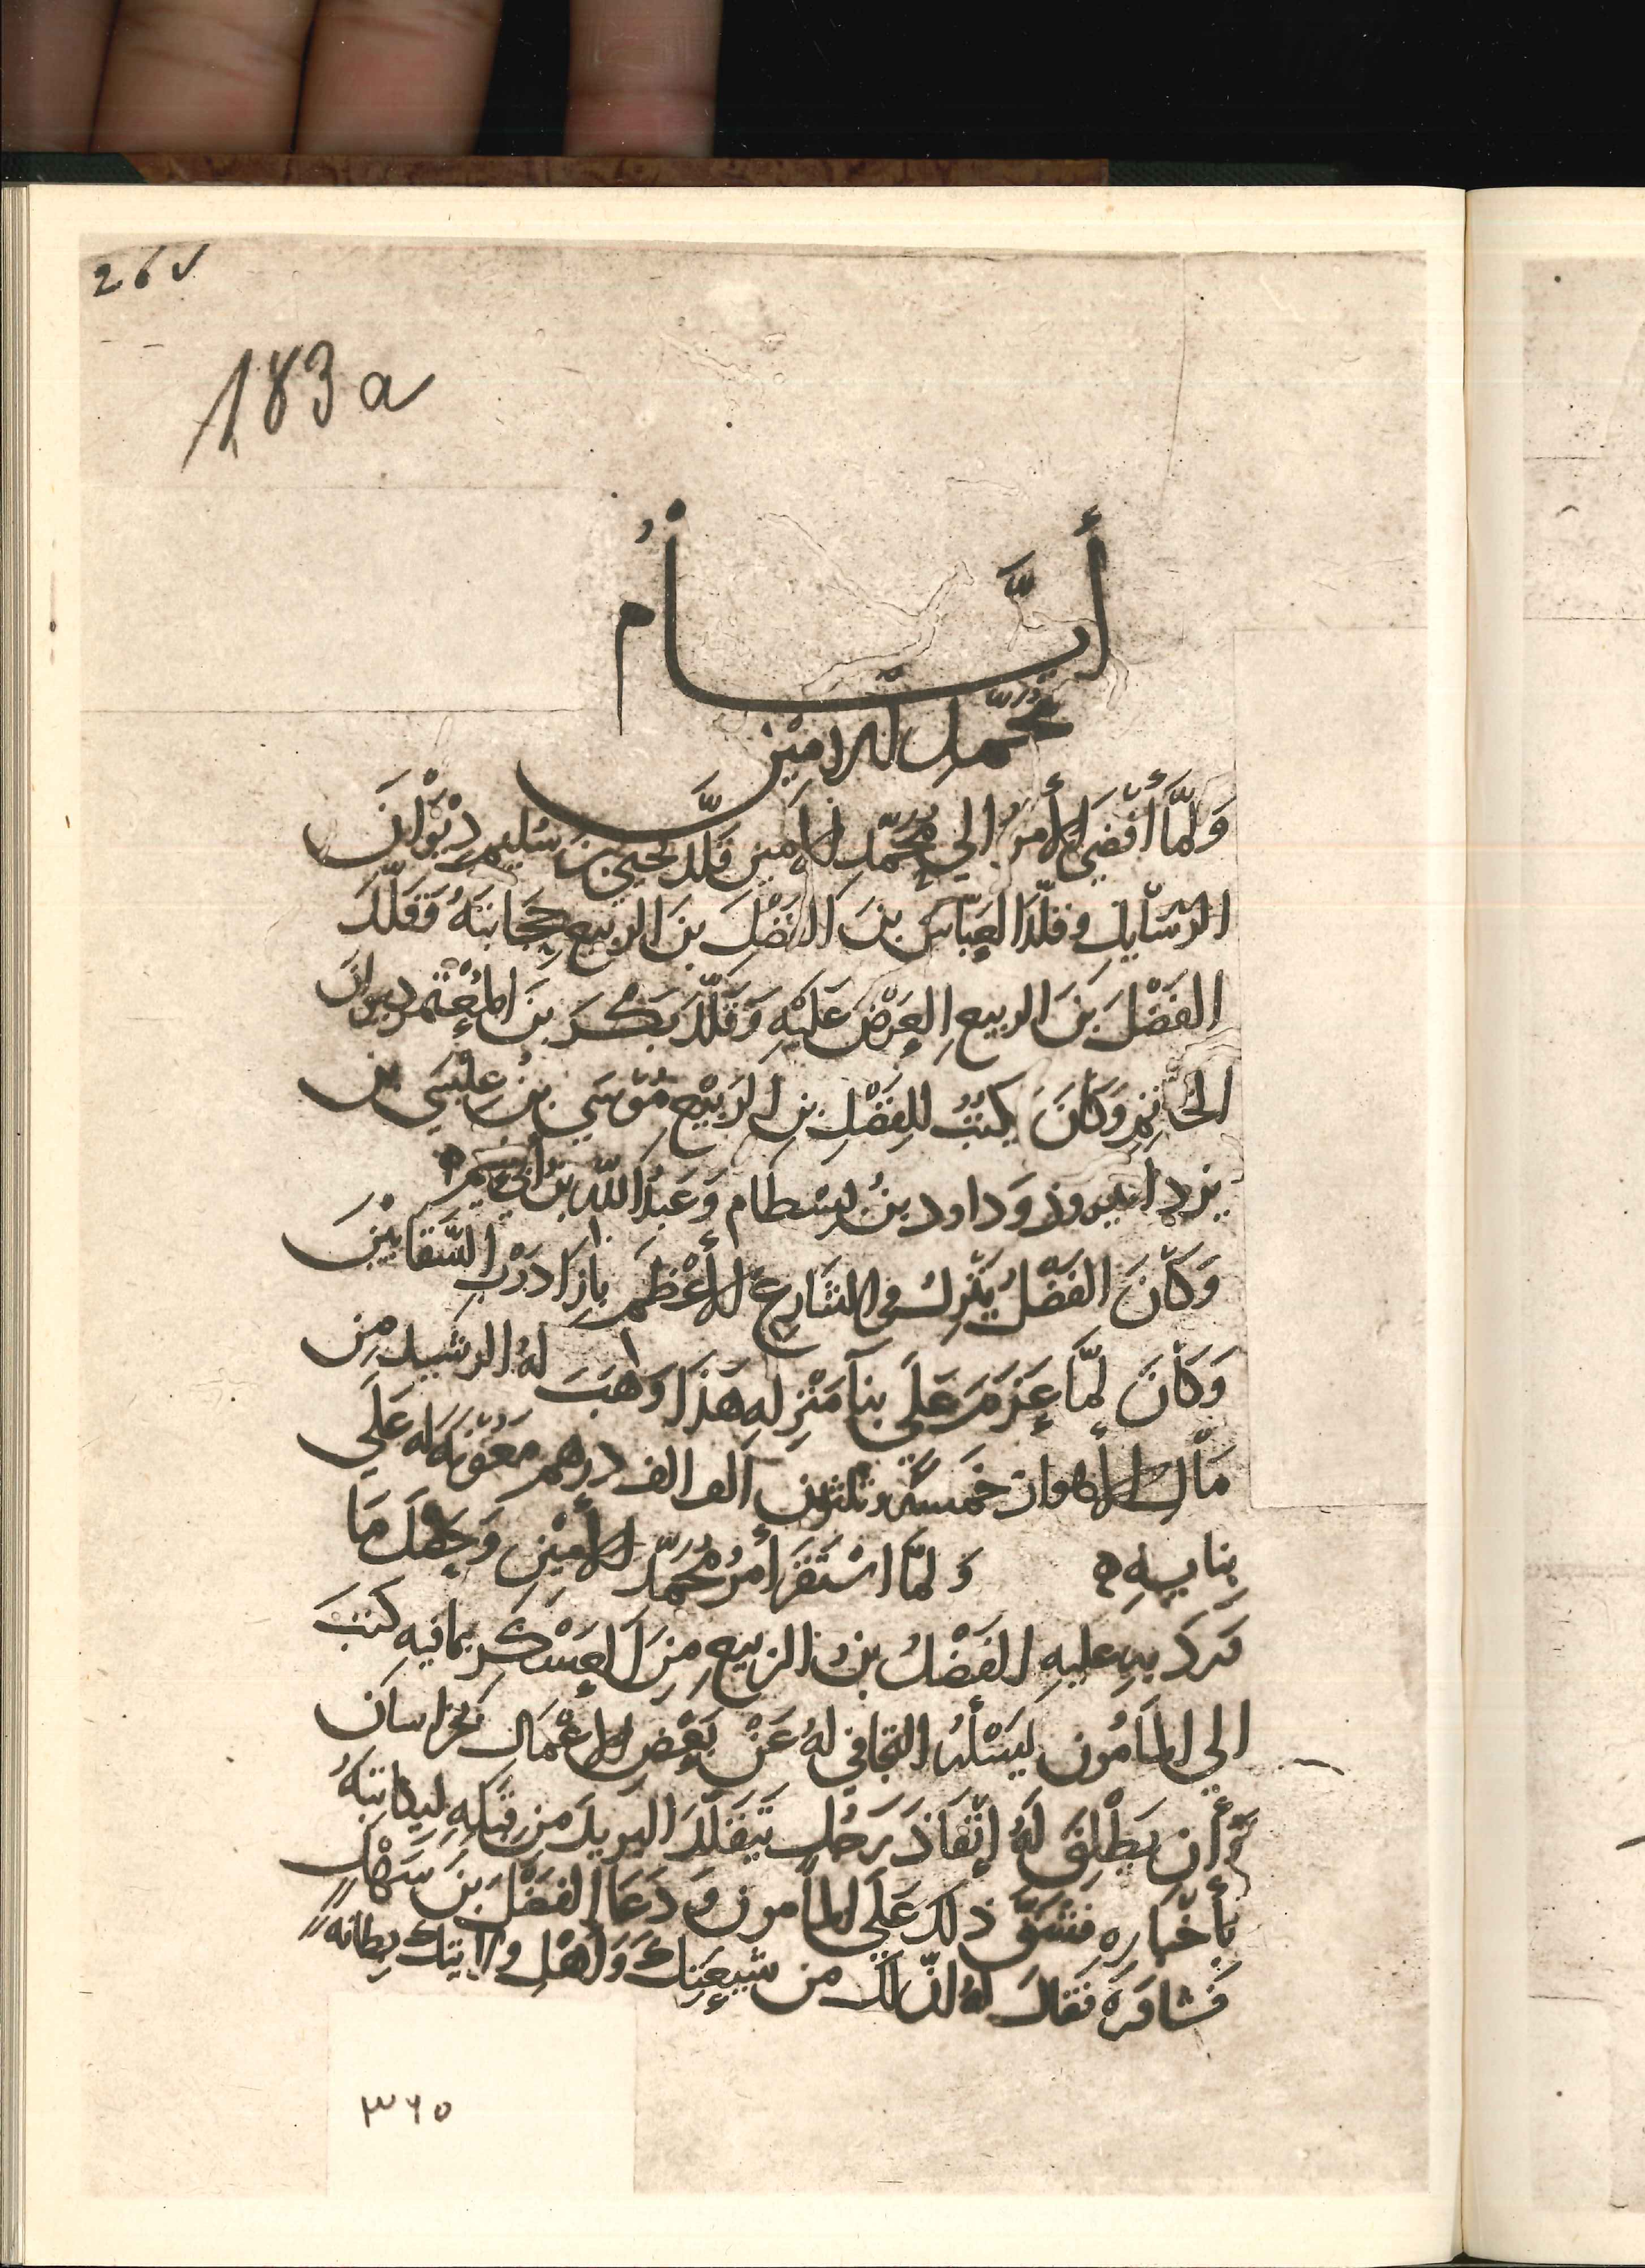 26v
183a
أيَّامُ
مُحَمَّد الامِيْن
وَلمَّا أفْضَي الأمرُ الي مُحَمّد الامين قَلّدَ يحيي بن سُليم دِيْوَانَ
الرّسَايل وقلّدَ العَبّاسَ بنَ الفَضْلَ بنَ الربيع حِجَابتَهُ وَقَلَّدَ
الفَضْلَ بنَ الربيع العَرْضَ عَليْهِ وَقَلّدَ بَكْرَ بنَ المُعْتَمر ديوانَ
الخَاتم وَكانَ يكتُبُ للفَضْلِ بنِ الرَبيْع مُوْسَي بنُ عِيْسَي بن
يزدانيروذ وَداود بنُ بسْطام وَعَبْدُ اللّه بنُ أبي نعيم ه
وَكَانَ الفَضْلُ يَنْزلُ في الشَارِع الأعْظَم بازَا دَرْبِ السَّقّايِيْنَ
وَكَانَ لمَّا عَزمَ عَلَي بنآ مَنْزِلهِ هَذَا وَهَبَ لهُ الرشيد مِن
مَال الأهواز خَمسَةً وثلثون الف الف درهم مَعُوْنَةً لهُ عَلَي
بنايهِ ه وَلمَّا اسْتَقَرَ أمرُ مُحَمّد الأمِيْن وَحَصَلَ مَا
وَرَدَ بهِ عليهِ الفَضْلُ بن الربيع مِنَ العَسْكر بمافيهِ كَتَبَ
الي المَامُون يَسْألهُ التجَافي لهُ عَنْ بَعْض الأعْمَال بخراسانَ
وَأن يَطْلقَ لهُ إنْفَاذَ رَجُل يَتَقَلّدَ البريدَ مِن قِبَلِهِ ليكاتبَهُ
بأخْبَارهِ فشقَّ ذلكَ عَلَي المأمون وَدَعَا الفَضْلَ بنَ سَهْل
فشاورَهُ فقَالَ لهُ انّ لكَ من شيعَتِكَ وَأهْلِ ولايتكَ بطانةً
٣٦٥